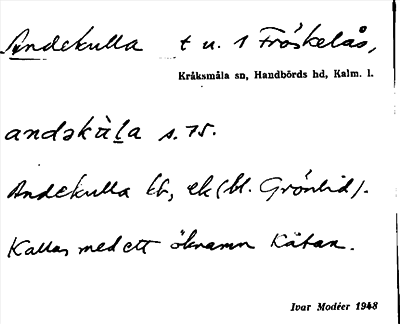 Andekulla t u. 1 Fröskelås,
Kråksmåla sn, Handbörds hd, Kalm. l.
andəkùl̲a s. 75.
Andekulla kb, ek (bl. Grönlid).
Kallas med ett öknamn Kåtan.
Ivar Modéer 1948